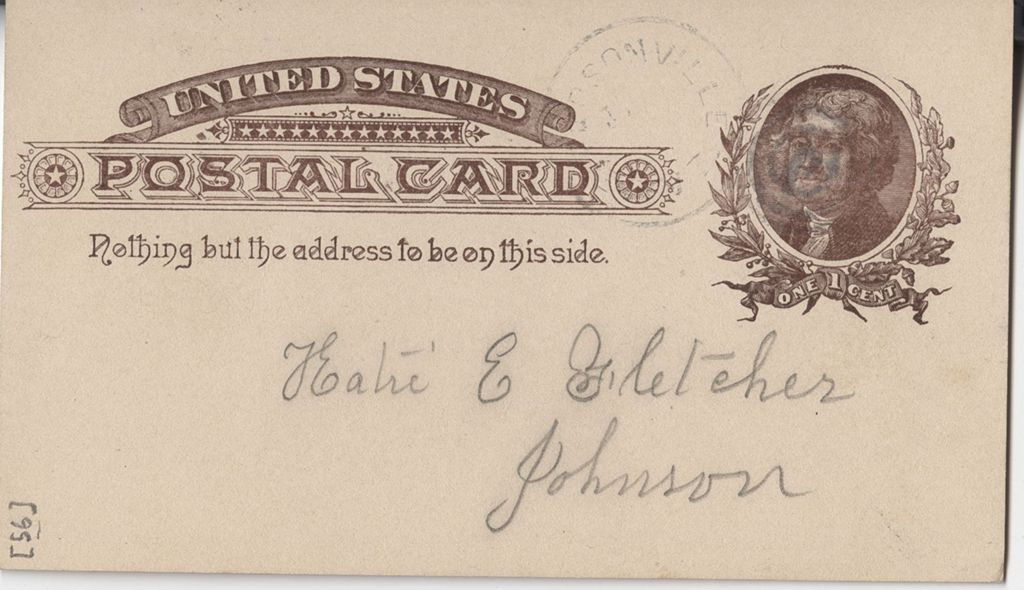 UNITED STATES
POSTAL CARD
Nothing but the address to be on this side.
SONVILLE
ONE 1 CENT
Katie E Fletcher
Johnson
[56]